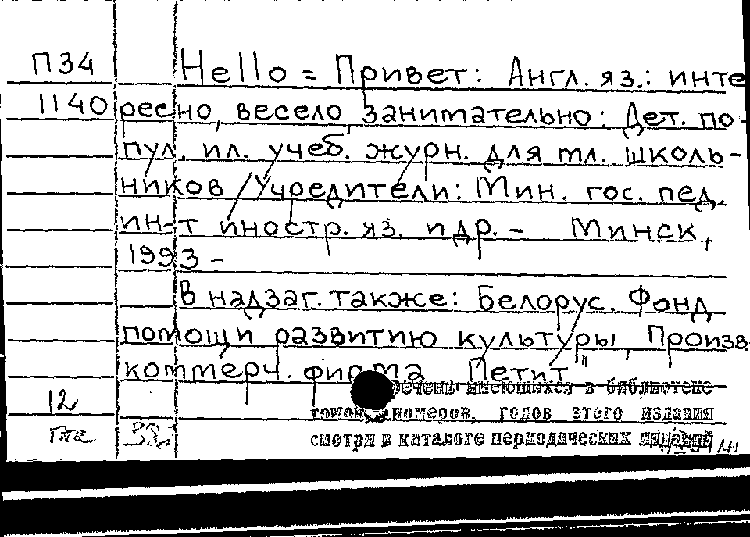 П34 Hello = Привет: Англ. яз.: инте
1140 ресно, весело, занимательно: Дет. по-
пул. ил. учеб. журн. для мл. школь-
ников / Учредители: Мин. гос. пед.
ин-т иностр. яз. и др. - Минск,
1993 -
В надзаг. также: Белорус. Фонд
помощи развитию культуры, Произв.
коммерч. фирма "Петит"
речень имеющихся в библиотеке
12 номеров, годов этого издания
смотри в каталоге периодических изданий